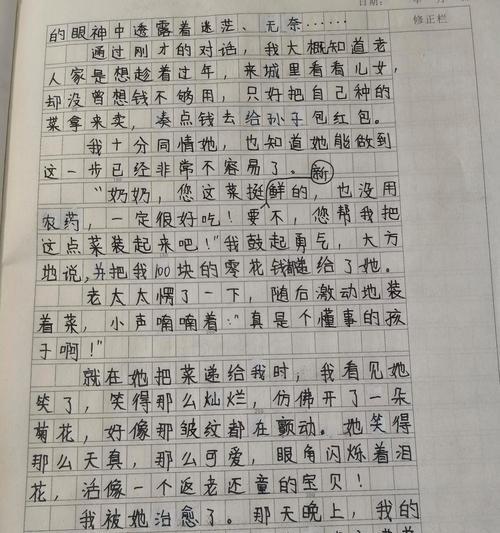 日期：
修正栏
的眼神中透露着迷茫、无奈……
通过刚才的对话，我大概知道老
人家是想趁着过年，来城里看看儿女，
却没曾想钱不够用，只好把自己种的
菜拿来卖，凑点钱去给孙子包红包。
我十分同情她，也知道她能做到
这一步已经非常不容易了。
新
“奶奶，您这菜挺鲜的，也没用
农药，一定很好吃！要不，您帮我把
这点菜装起来吧！”我鼓起勇气，大方
地说，并把我100块的零花钱都递给了她。
老太太愣了一下，随后激动地装
着菜，小声喃喃着：“真是个懂事的孩
子啊！”
就在她把菜递给我时，我看见她
笑了，笑得那么灿烂，仿佛开了一朵
菊花，好像那皱纹都在颤动。她笑得
那么天真，那么可爱，眼角闪烁着泪
花，活像一个返老还童的宝贝！
我被她治愈了。那天晚上，我的